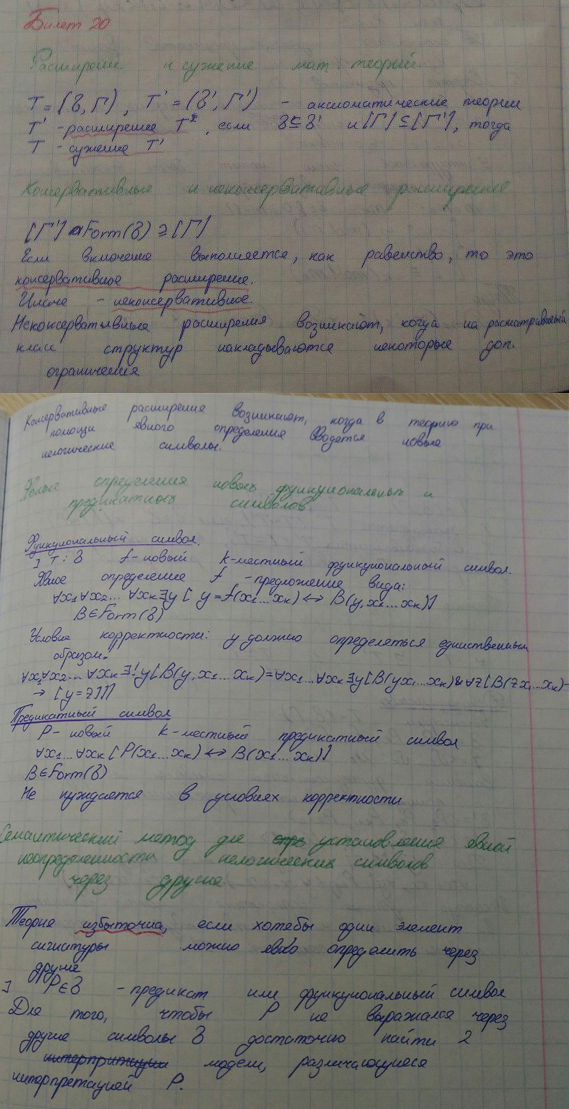 Билет 20
Расширение и сужение мат. теорий
T = (б, Г), T' = (б', Г') - аксиоматические теории
T' - расширение T, если б ⊆ б' и [Г] ⊆ [Г'], тогда
T - сужение T'
Консервативные и неконсервативные расширения
[Г'] ∩ Form(б) ⊇ [Г]
Если включение выполняется, как равенство, то это
консервативное расширение.
Иначе - неконсервативное.
Неконсервативные расширения возникают, когда на рассматриваемый
класс структур накладываются некоторые доп.
ограничения
Консервативные расширения возникают, когда в теорию при
помощи явного определения вводятся новые
нелогические символы.
Явные определения новых функциональных и
предикатных символов.
Функциональный символ.
] T: б f - новый k-местный функциональный символ.
Явное определение f - предложение вида:
∀x₁∀x₂... ∀xₖ∃y [y = f(x₁...xₖ) ↔ B(y, x₁...xₖ)]
B ∈ Form(б)
Условие корректности: y должно определяться единственным
образом.
∀x₁∀x₂... ∀xₖ∃!y[B(y, x₁...xₖ) = ∀x₁...∀xₖ∃y[B(yx₁...xₖ)&∀z[B(zx₁...xₖ) -
→ [y = z]]]
Предикатный символ
P - новый k-местный предикатный символ
∀x₁...∀xₖ [P(x₁...xₖ) ↔ B(x₁...xₖ)]
B ∈ Form(б)
Не нуждается в условиях корректности
Семантический метод для установления явной
неопределенности нелогических символов
через другие
Теория избыточна, если хотябы один элемент
сигнатуры можно явно определить через
другие
] P ∈ б - предикат или функциональный символ
Для того, чтобы P не выражался через
другие символы б достаточно найти 2
интерпритации модели, различающиеся
интерпретацией P.